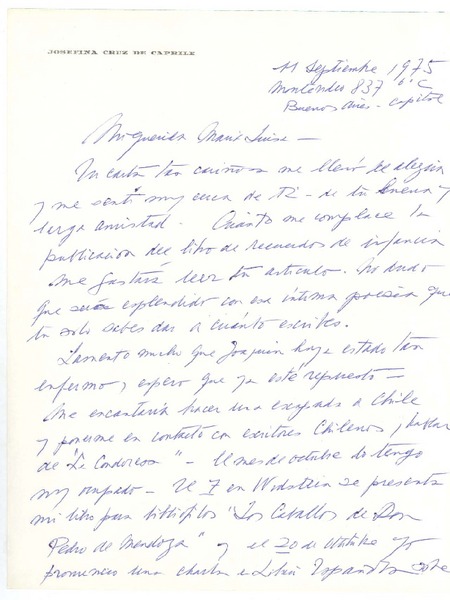 JOSEFINA CRUZ DE CAPRILE
11 Septiembre 1975
Montevideo 837 6° C
Buenos Aires - Capital
Mi querida María Luisa —
Tu carta tan cariñosa me llenó de alegría
y me sentí muy cerca de ti - de tu sincera y
larga amistad. Cuánto me complace la
publicación del libro de recuerdos de infancia
Me gustará leer tu artículo. No dudo
que será esplendido con esa íntima poesía que
tu solo sabes dar a cuánto escribes.
Lamento mucho que Joaquín haya estado tan
enfermo, espero que ya esté repuesto —
Me encantaría hacer una escapada a Chile
y ponerme en contacto con escritores Chilenos, hablar
de "La Condoresa" - El mes de octubre lo tengo
muy ocupado - El 7 en se presenta
mi libro para bibliófilos "Los Caballos de Don
Pedro de Mendoza" y el 20 de Octubre yo
pronuncio una charla e Española sobre